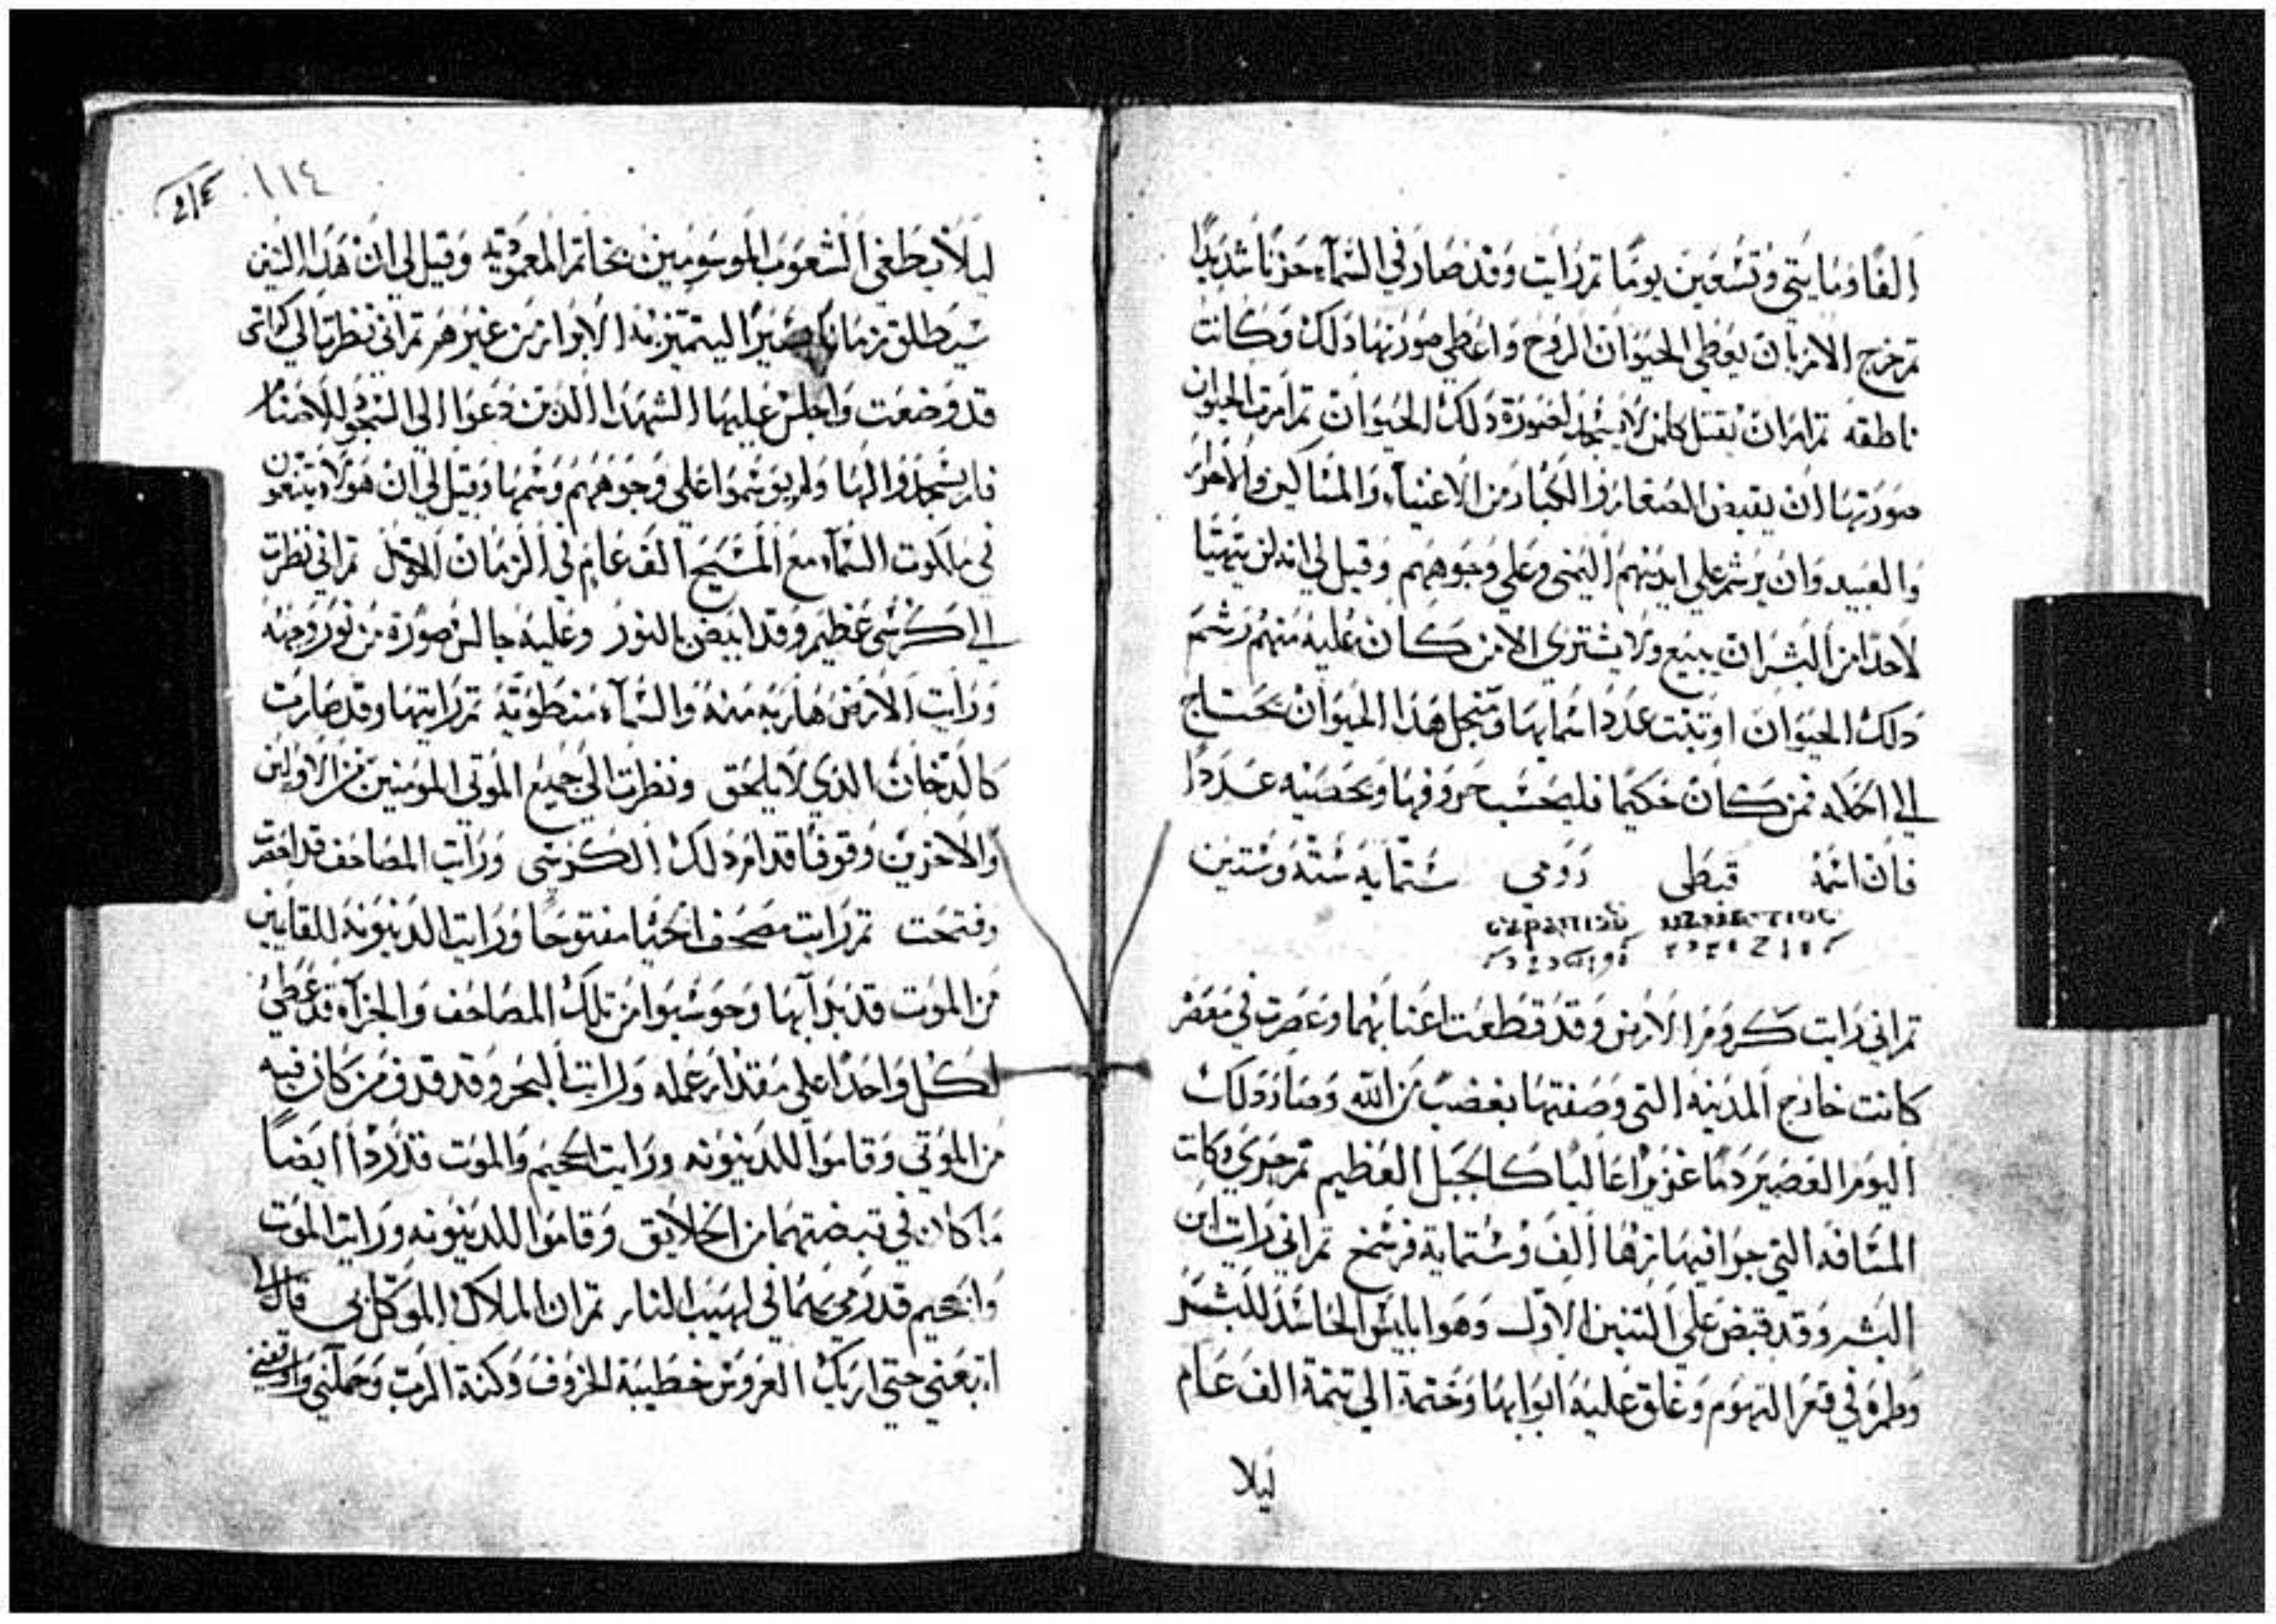 الفا ومايتي وتسعين يوما تم رايت وقد صار في السمآء حزنا شديدا
تم خرج الامر بان يعطي الحيوان الروح واعطي صورتها دلك وكانت
ناطقه تم امر ان يقتل كلمن لا يسجد لصورة دلك الحيوان تم امرت الحيوان
صورتها ان يقبض الصغار والكبار من الاغنيآء والمساكين والاحرار
والعبيد وان يرشم علي ايديهم اليمني وعلي وجوههم وقيل لي انه لن يتهيا
لاحدا من البشر ان يبيع ولا يشتري الا من كان عليه منهم رشم
دلك الحيوان او تبت عدد اسمايها ومنجل هدا الحيوان يحتاج
الي احكلاه فمن كان حكيما فليحسب حروفها ويحصيه عددا
فان اسمه قبطي رومي ستمايه سته وستين
تم اني رايت كروم الارض وقد قطعت اعنابهما وعصرت في معصر
كانت خارج المدينه التي وصفتها بغضب من الله وصار دلك
اليوم العصير دما غزيرا عاليا كالجبل العظيم تم جري وكانت
المسافه التي جرا فيها نزها الف وستماية فرسخ تم اني رايت ابن
البشر وقد قبض علي التنين الاول وهو ابليس الحاسد للبشر
وطمره في قعر التهوم وغلق عليه ابوابها وختمه الي تتمة الف عام
ليلا
١١٤
ليلا يطغي الشعوب الموسومين بخاتم المعموديه وقيل لي ان هدا التنين
سيطلق زمانا صغيرا ليتميز منه الابرار من غيرهم تم اني نظرت الي كراسي
قد وضعت واجلس عليها الشهدا الدين دعوا الي السجود للاصنام
فلم يسجدوا لها ولم يوسموا علي وجوههم وسمها وقيل لي ان هولاء يتنعمون
في ملكوت السمآء مع المسيح الف عام في الزمان الاول تم اني نظرت
الي كرسي عظيم وقد ابيض بالنور وعليه جالس صورة من نور وجهه
ورايت الارض هاربه منه والسمآء منطويه تم رايتها وقد صارت
كالدخان الدي لا يلحق ونظرت الي جميع الموتي المومنين من الاولين
والاخرين وقوفا قدام دلك الكرسي ورايت المصاحف قد احضرت
وفتحت تم رايت مصحف الحيا مفتوحا ورايت الدينونه للقايمين
من الموت قد بدا بها وحوسبوا من تلك المصاحف والجزآء قد عطي
لكل واحدا علي مقدار عمله ورايت البحر وقد قدف من كان فيه
من الموتي وقاموا للدينونه ورايت الجحيم والموت قد ردا ايضا
ما كان في قبضتهما من الخلايق وقاموا للدينونه ورايت الموت
والجحيم قد رمي بهما في لهيب النار تم ان الملاك الموكل بي قال لي
اتبعني حتي اريك العروس خطيبة الخروف وكنة الرب وحملني واوقفني